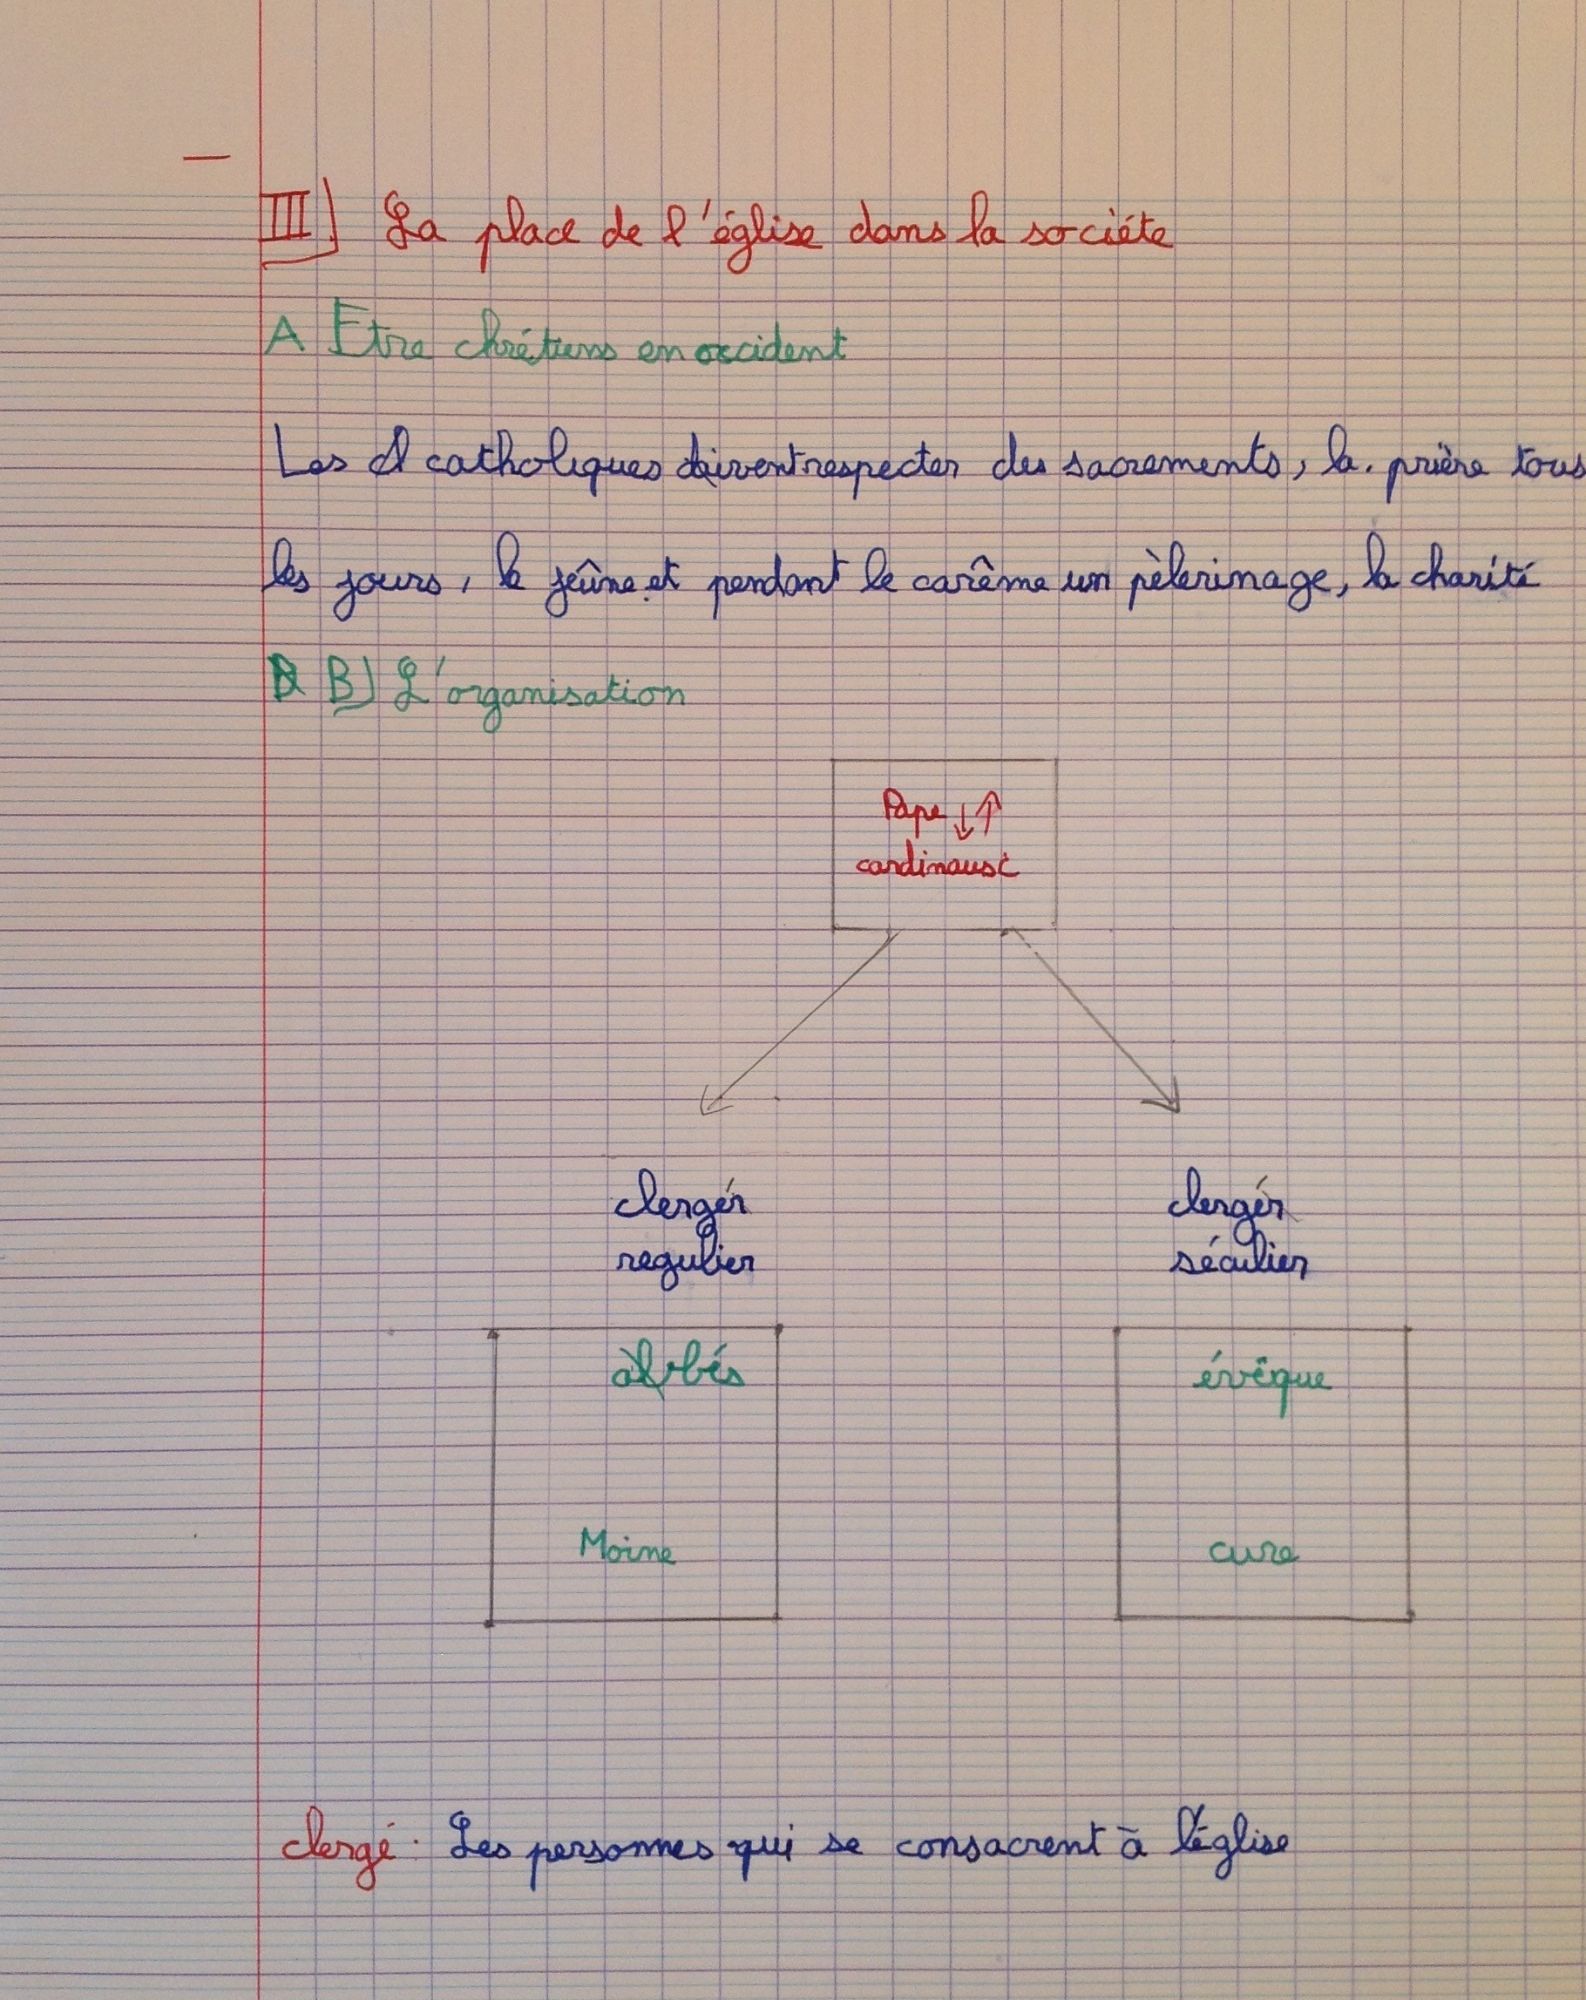 III] La place de l'église dans la sociéte
A Etre chrétiens en occident
Les catholiques doivent respecter des sacrements, la prière tous
les jours, le jeûne et pendant le carême un pèlerinage, la charité
B] L'organisation
Pape ↓↑
cardinaux
clergér
regulier
clergér
séculier
abbés
évêque
Moine
cure
clergé : Les personnes qui se consacrent à l'église